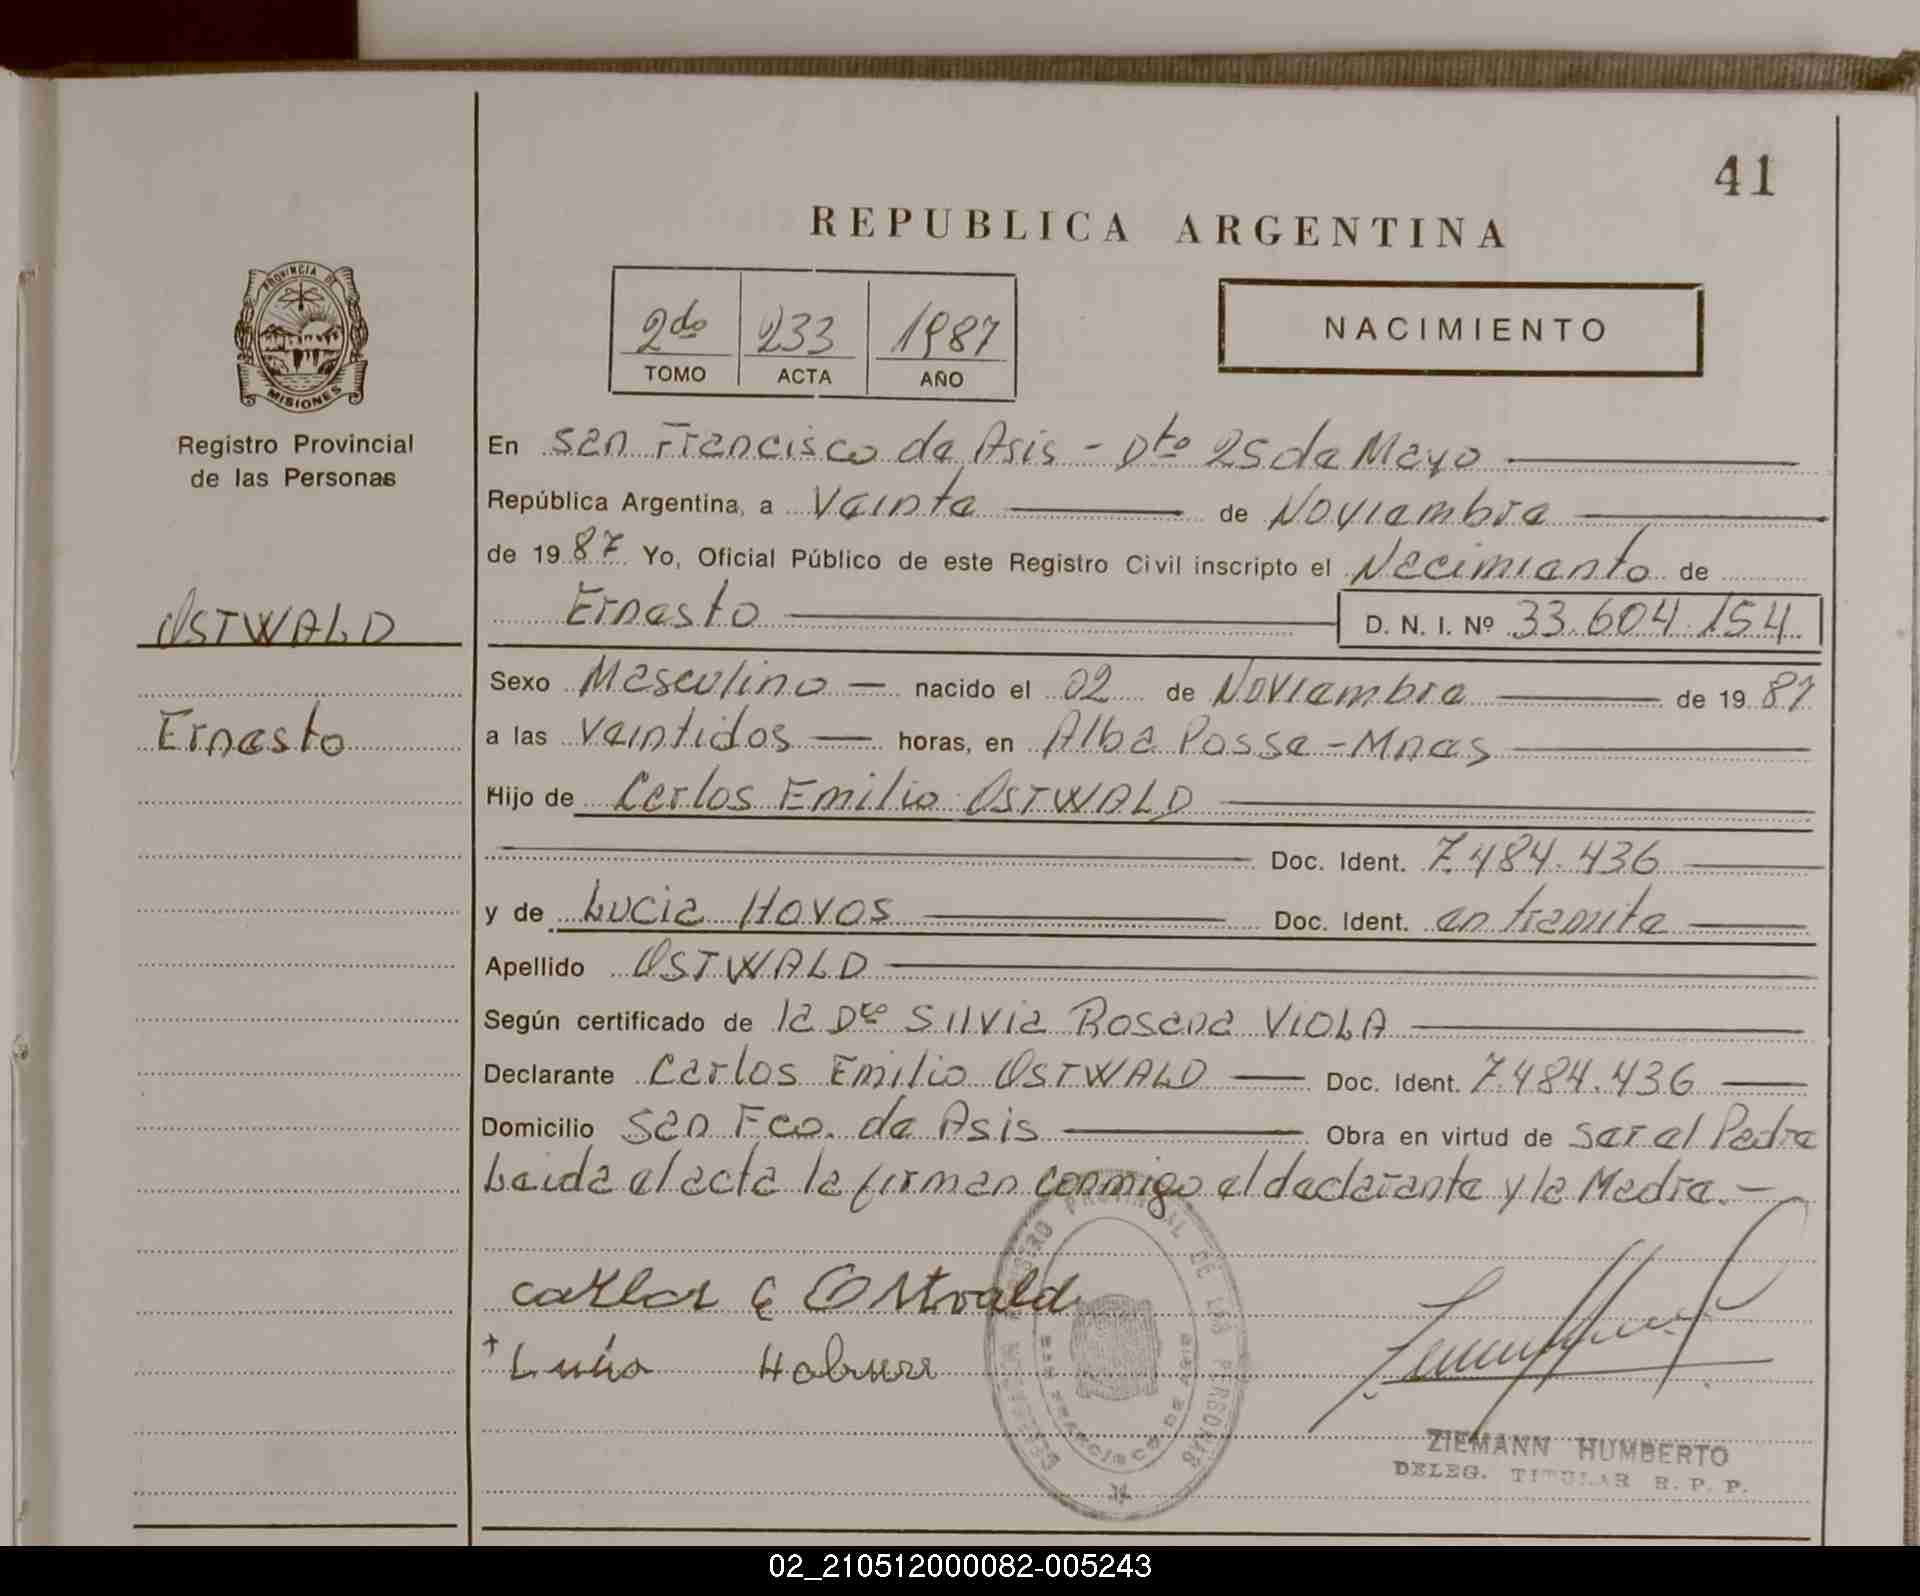 41
REPUBLICA ARGENTINA
2do 233 1987
TOMO ACTA AÑO
NACIMIENTO
PROVINCIA DE
MISIONES
Registro Provincial
de las Personas
OSTWALD
Ernesto
En San Francisco de Asis - Dto 25 de Mayo
República Argentina, a Veinte de Noviembre
de 1987 Yo, Oficial Público de este Registro Civil inscripto el Nacimiento de
Ernesto D. N. I. Nº 33.604.154
Sexo Masculino — nacido el 02 de Noviembre de 1987
a las Veintidos — horas, en Alba Posse - Mnes
Hijo de Carlos Emilio OSTWALD
Doc. Ident. 7.484.436
y de Lucia Hovos Doc. Ident. en tramite
Apellido OSTWALD
Según certificado de la Dra Silvia Rosana VIOLA
Declarante Carlos Emilio OSTWALD — Doc. Ident. 7.484.436
Domicilio San Fco. de Asis Obra en virtud de ser el Padre
Leida el acta la firman conmigo el declarante y la Madre.-
Carlos E Ostwald
+ Lucia
REGISTRO PROVINCIAL DE LAS PERSONAS
SAN FRANCISCO DE ASIS
ZIEMANN HUMBERTO
DELEG. TITULAR R. P. P.
02_210512000082-005243